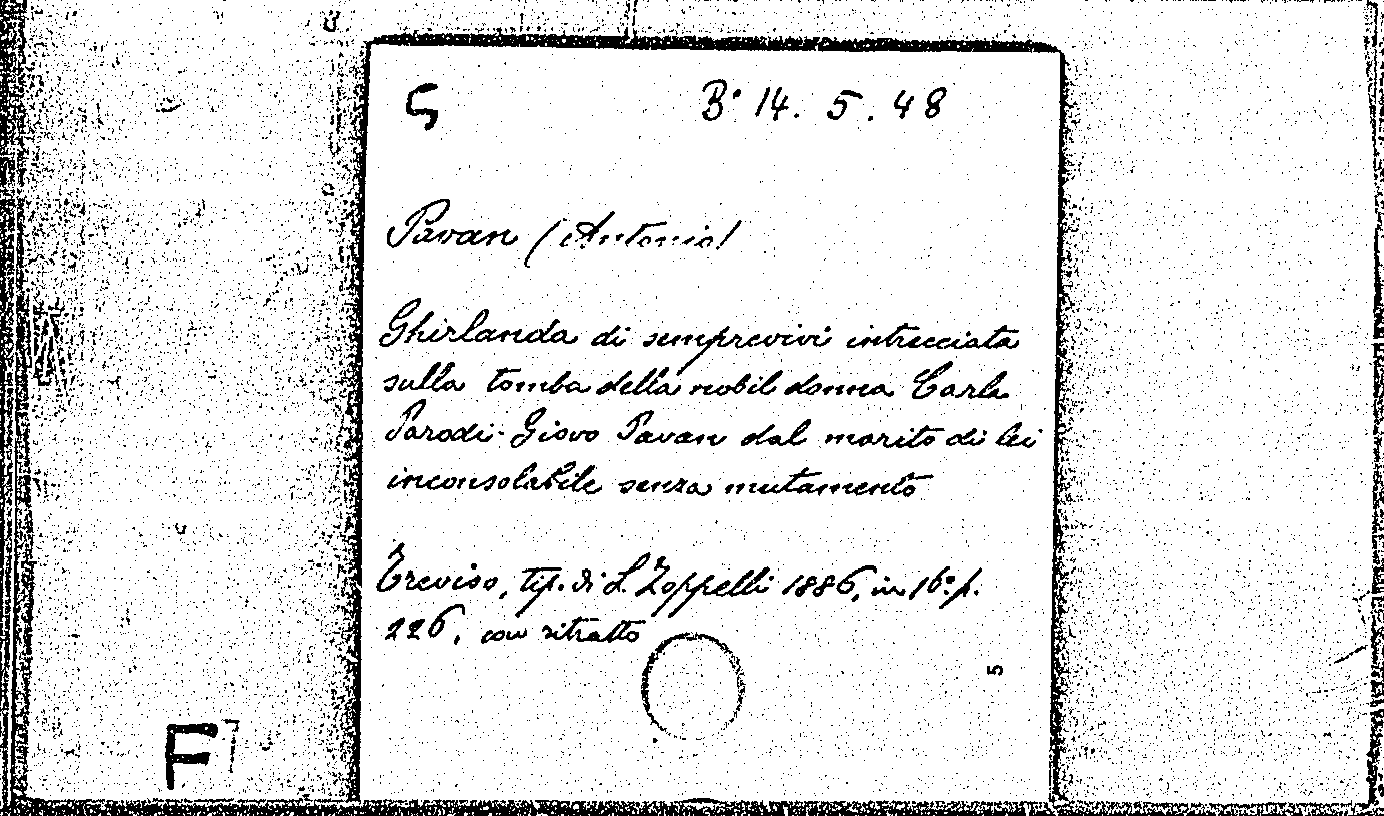 5 B° 14. 5. 48
Pavan (Antonio)
Ghirlanda di semprevivi intrecciata
sulla tomba della nobil donna Carla
Parodi-Giovo Pavan dal marito di lei
inconsolabile senza mutamento
Treviso, tip. di L. Zoppelli 1886, in 16° p.
226, con ritratto
5
F